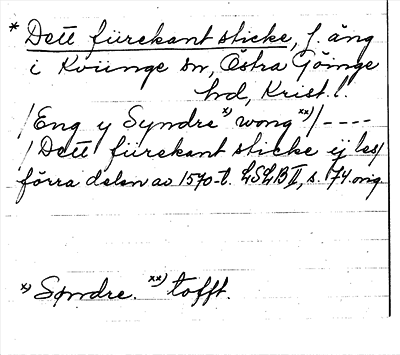 * Dett fürekant sticke, f. äng
i Kviinge sn, Östra Göinge
hd, Krist. l.
/Eng y Syndre x) wong xx)/----
/Dett fürekant sticke ij les/
förra delen av 1570-t. LSLB II, s. 174 orig
x) Søndre. xx) tofft.